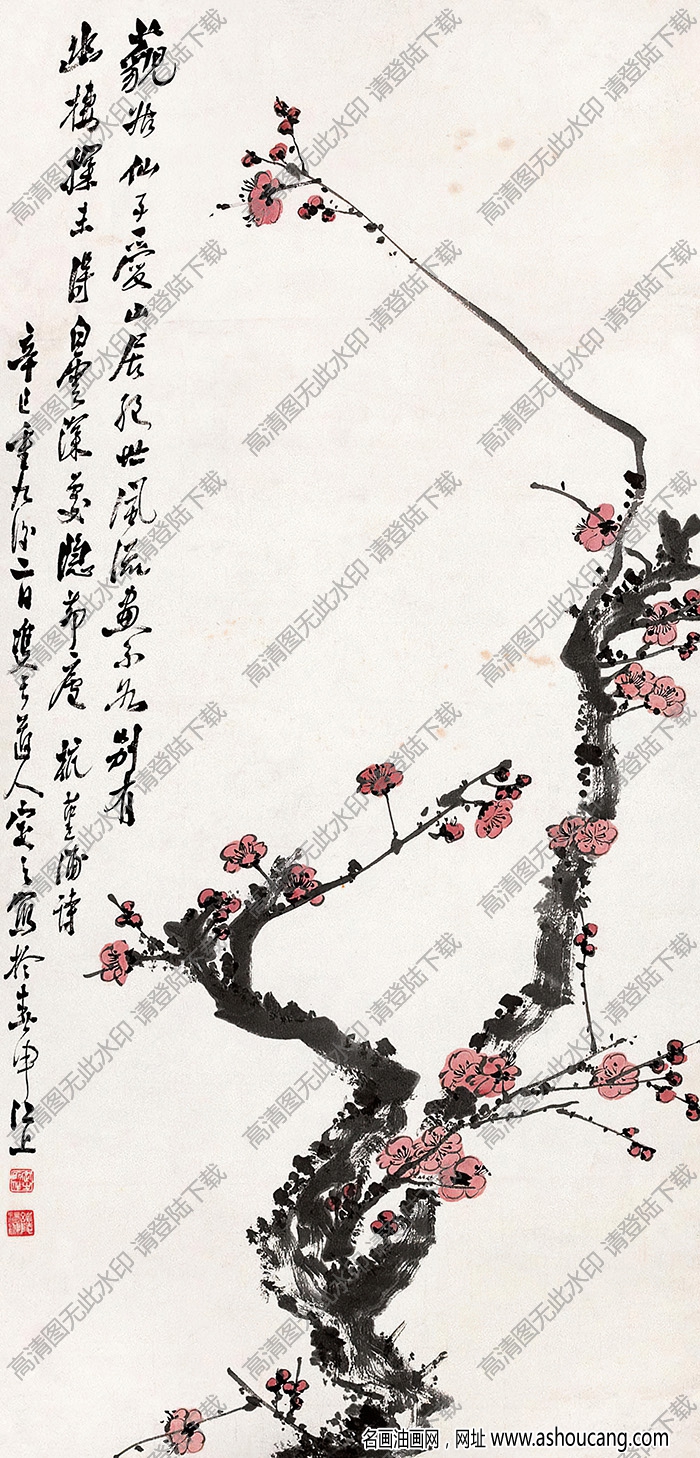 藐姑仙子愛山居絕世風流畫不如別有
幽棲探未得白雲深處隱茆廬 杭堇浦詩
辛巳重九後二日雙于道人定之寫於春申江上
高清图无此水印 请登陆下载
名画油画网，网址 www.ashoucang.com